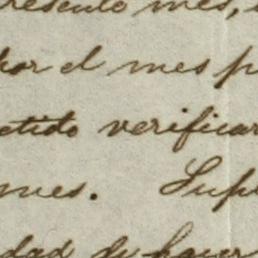 mes,
por el mes p
etido verificar
mes. Sup
dad de hacer